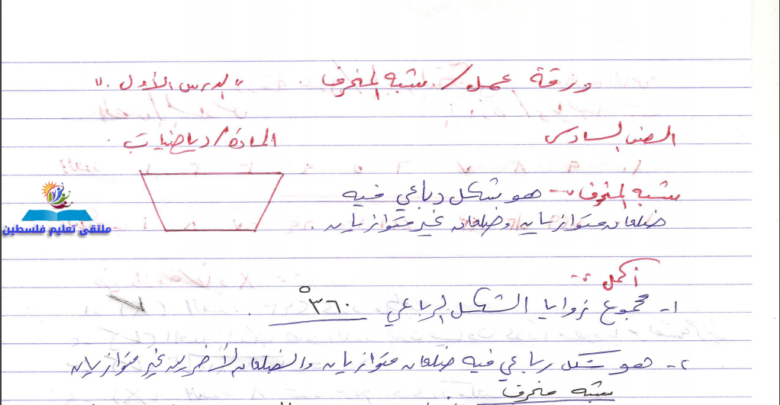 ورقة عمل / شبه المنحرف . " الدرس الأول "
الصف السادس
المادة / رياضيات
شبه المنحرف :- هو شكل رباعي فيه
ضلعان متوازيان وضلعان غير متوازيان .
ملتقى تعليم فلسطين
أكمل :-
١- مجموع زوايا الشكل الرباعي ٣٦٠° .
٢- هو شكل رباعي فيه ضلعان متوازيان والضلعان الأخريين غير متوازيان
شبه منحرف